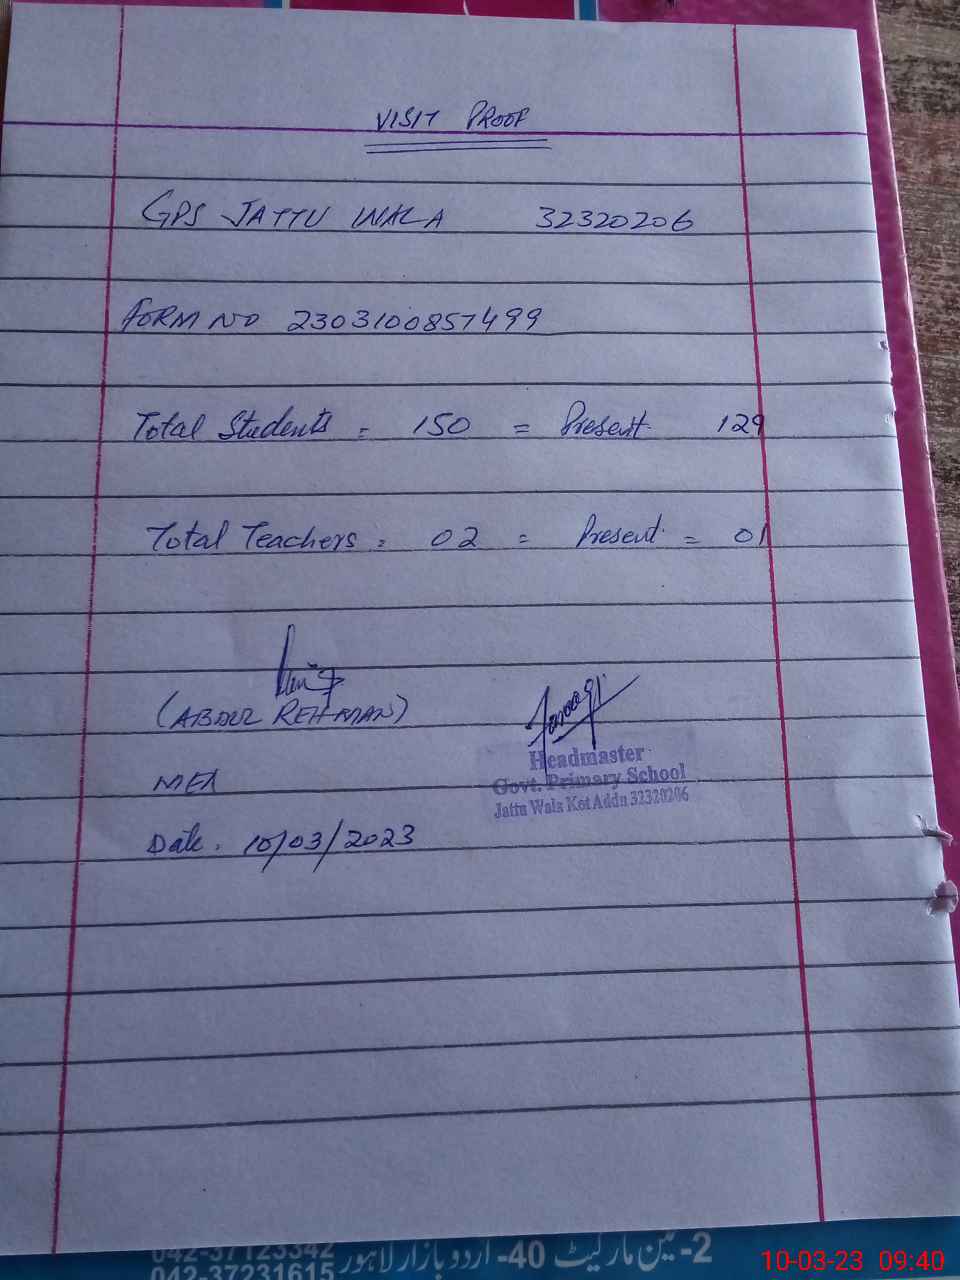 VISIT PROOF
GPS JATTU WALA 32320206
FORM NO 2303100857499
Total Students = 150 = Present 129
Total Teachers = 02 = Present = 01
(ABDUL REHMAN)
Farooq
MEA
Headmaster
Govt. Primary School
Jattu Wala Kot Addu 32320206
Date. 10/03/2023
042-37123342
2-مین مارکیٹ 40-اردو بازار لاہور
042-37231615
10-03-23 09:40